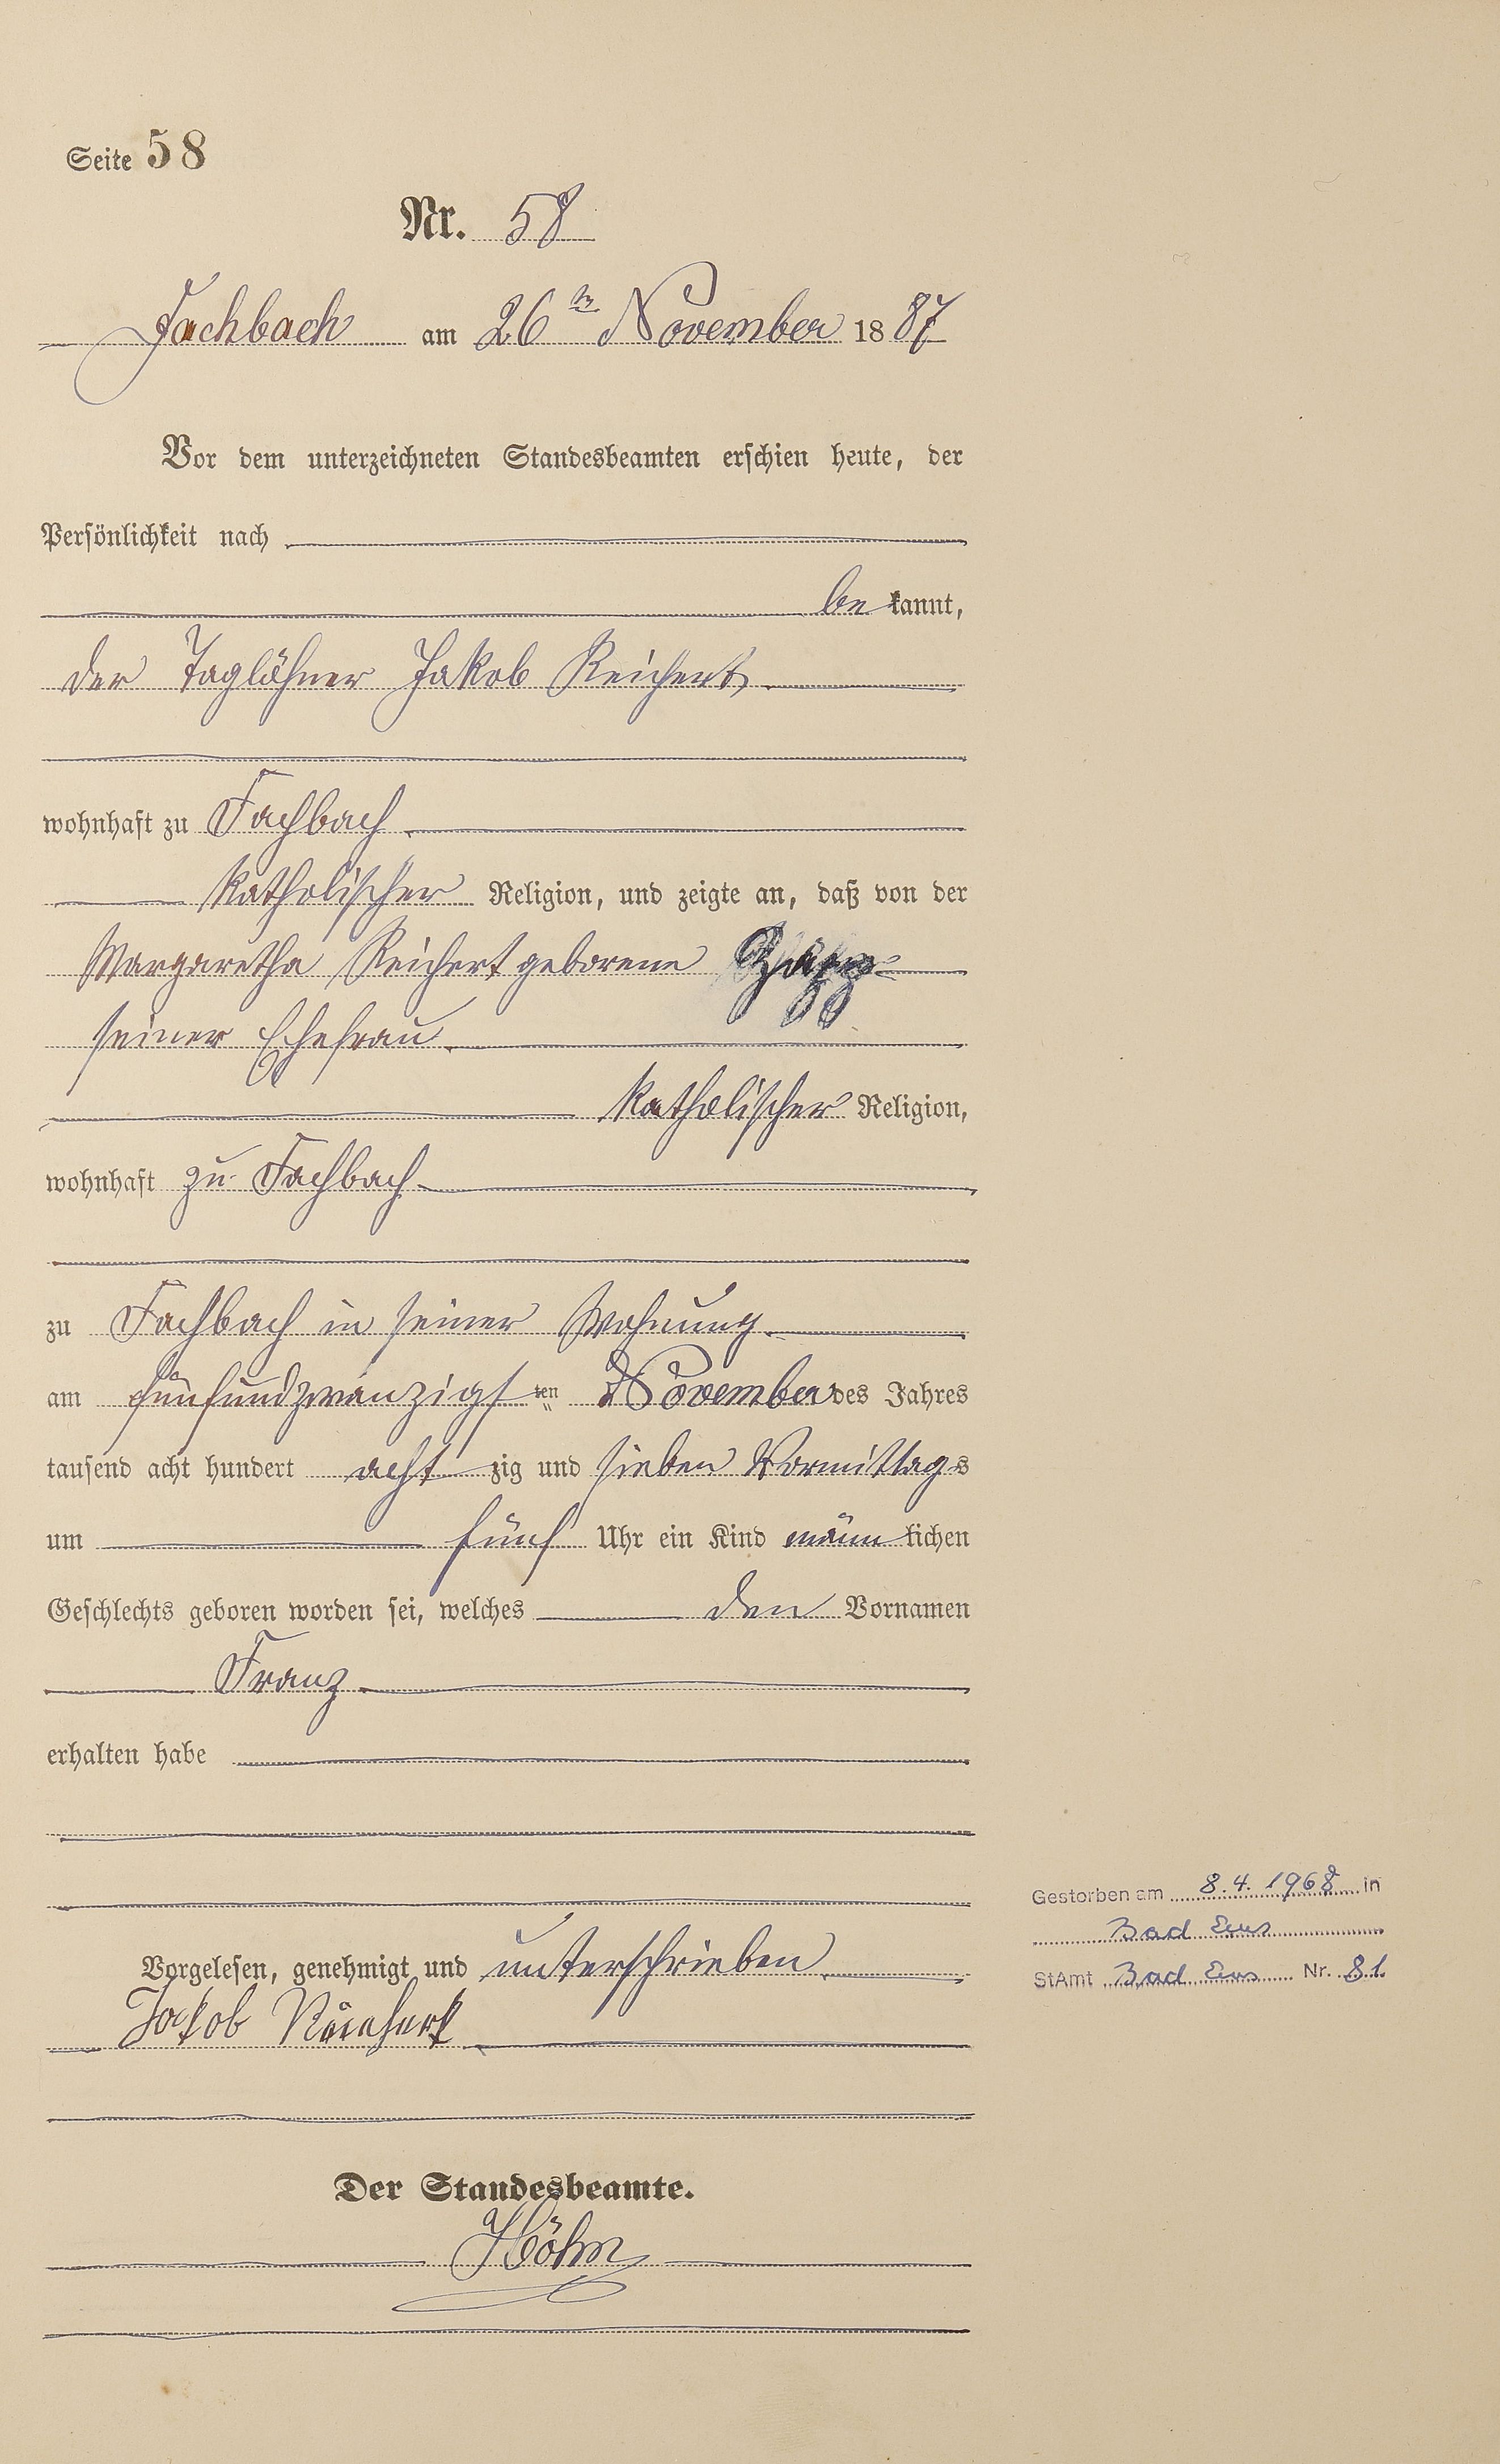 Seite 58
Nr. 58
Fachbach am 26ten November 1887
Vor dem unterzeichneten Standesbeamten erschien heute, der
Persönlichkeit nach
bekannt,
der Taglöhner Jakob Reichert
wohnhaft zu Fachbach
katholischer Religion, und zeigte an, daß von der
Margaretha Reichert geborene
seiner Ehefrau
katholischer Religion,
wohnhaft zu Fachbach
zu Fachbach in seiner Wohnung
am fünfundzwanzigsten November des Jahres
tausend acht hundert achtzig und sieben Vormittags
um fünf Uhr ein Kind männlichen
Geschlechts geboren worden sei, welches den Vornamen
Franz
erhalten habe
Vorgelesen, genehmigt und unterschrieben
Jakob
Der Standesbeamte.
Höhn
Gestorben am 8.4.1968 in
Bad Ems
StAmt Bad Ems Nr. 81